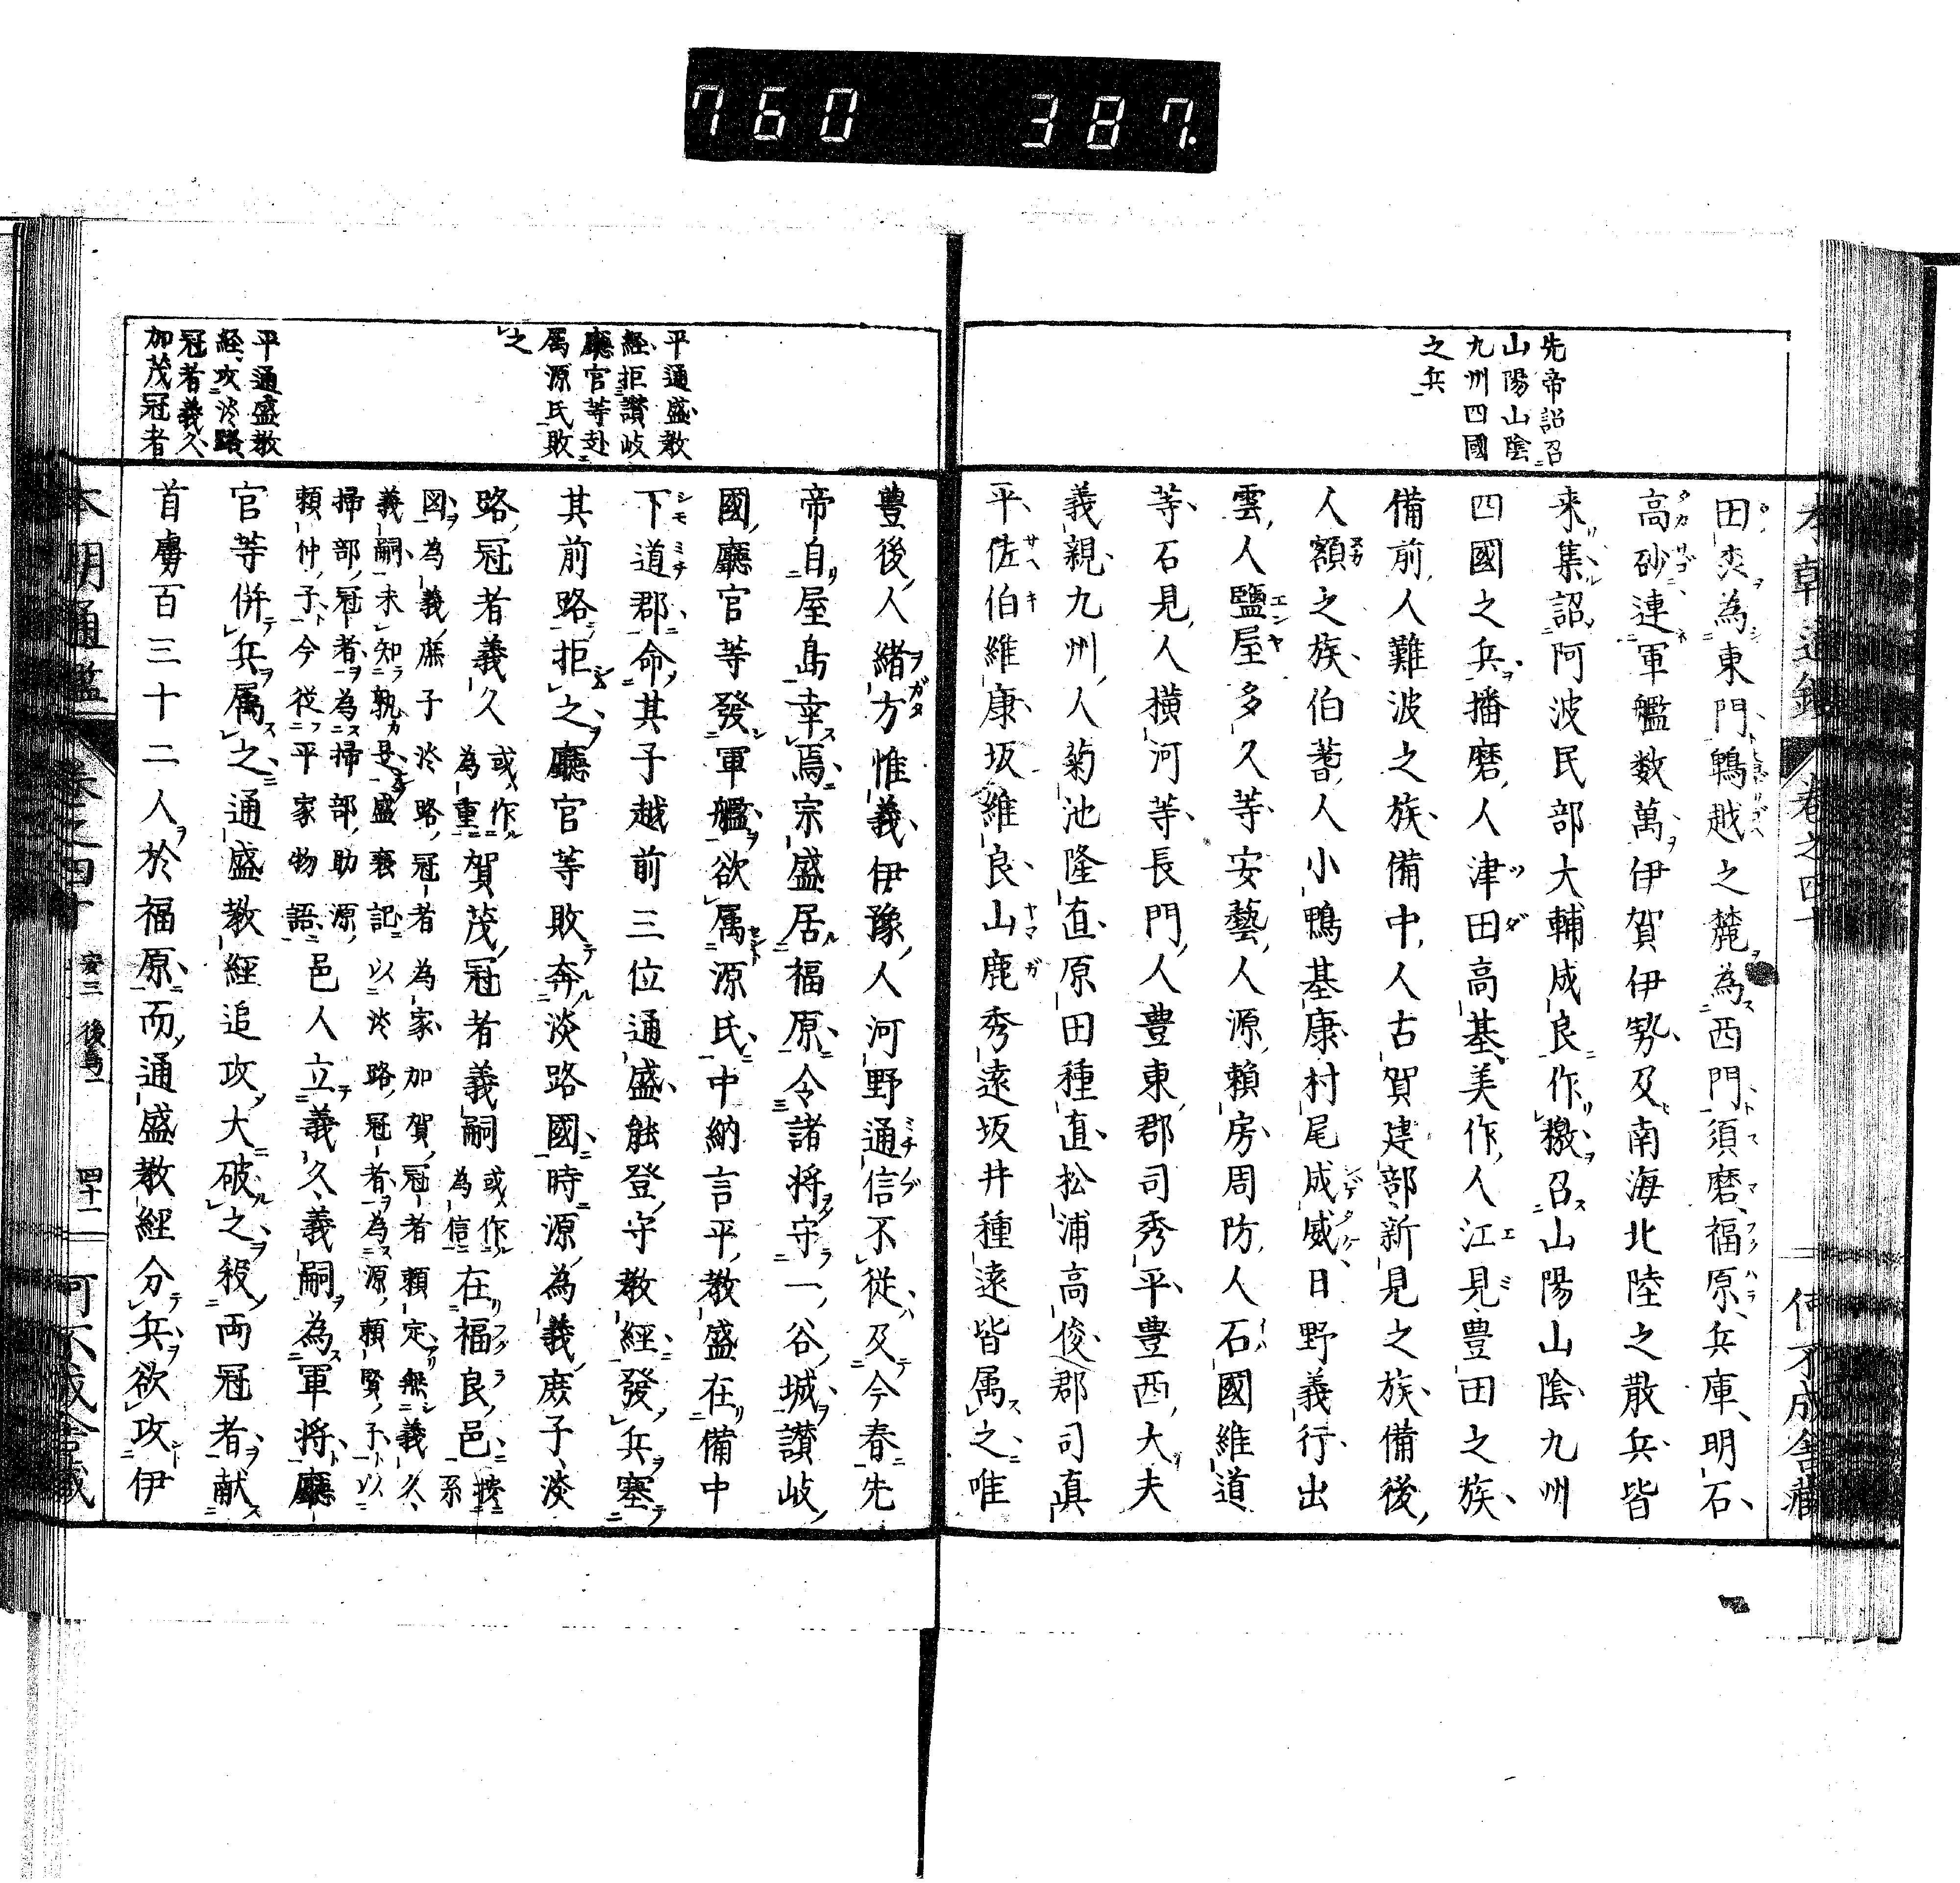 760 387.
先帝詔召
山陽山陰
九州四國
之兵
田森為東門鵯越之麓為西門須磨福原兵庫明石
高砂連軍艦数萬伊賀伊勢及南海北陸之散兵皆
来集詔阿波民部大輔成良作檄召山陽山陰九州
四國之兵播磨人津田高基美作人江見豊田之族
備前人難波之族備中人古賀建部新見之族備後
人額之族伯耆人小鴨基康村尾成威日野義行出
雲人鹽屋多久等安藝人源頼房周防人石國維道
等石見人横河等長門人豊東郡司秀平豊西大夫
義親九州人菊池隆直原田種直松浦高俊郡司真
平佐伯維康坂維良山鹿秀遠坂井種遠皆属之唯
平通盛教
経拒讃岐
廳官等赴
属源氏敗
之
平通盛教
経攻淡路
冠者義久
加茂冠者
豊後人緒方惟義伊豫人河野通信不従及今春先
帝自屋島幸焉宗盛居福原令諸将守一谷城讃岐
國廳官等發軍艦欲属源氏中納言平教盛在備中
下道郡命其子越前三位通盛能登守教經發兵塞
其前路拒之廳官等敗奔淡路國時源為義庶子淡
路冠者義久或作為重賀茂冠者義嗣或作為信在福良邑按系
図為義庶子淡路冠者為家加賀冠者頼定無義久
義嗣未知孰是盛衰記以淡路冠者為源頼賢子以
掃部冠者為掃部助源
頼仲子今従平家物語邑人立義久義嗣為軍将廳
官等併兵属之通盛教經追攻大破之殺両冠者献
首虜百三十二人於福原而通盛教經分兵欲攻伊
本朝通鑑 巻之四十 安三 後鳥一 四十一